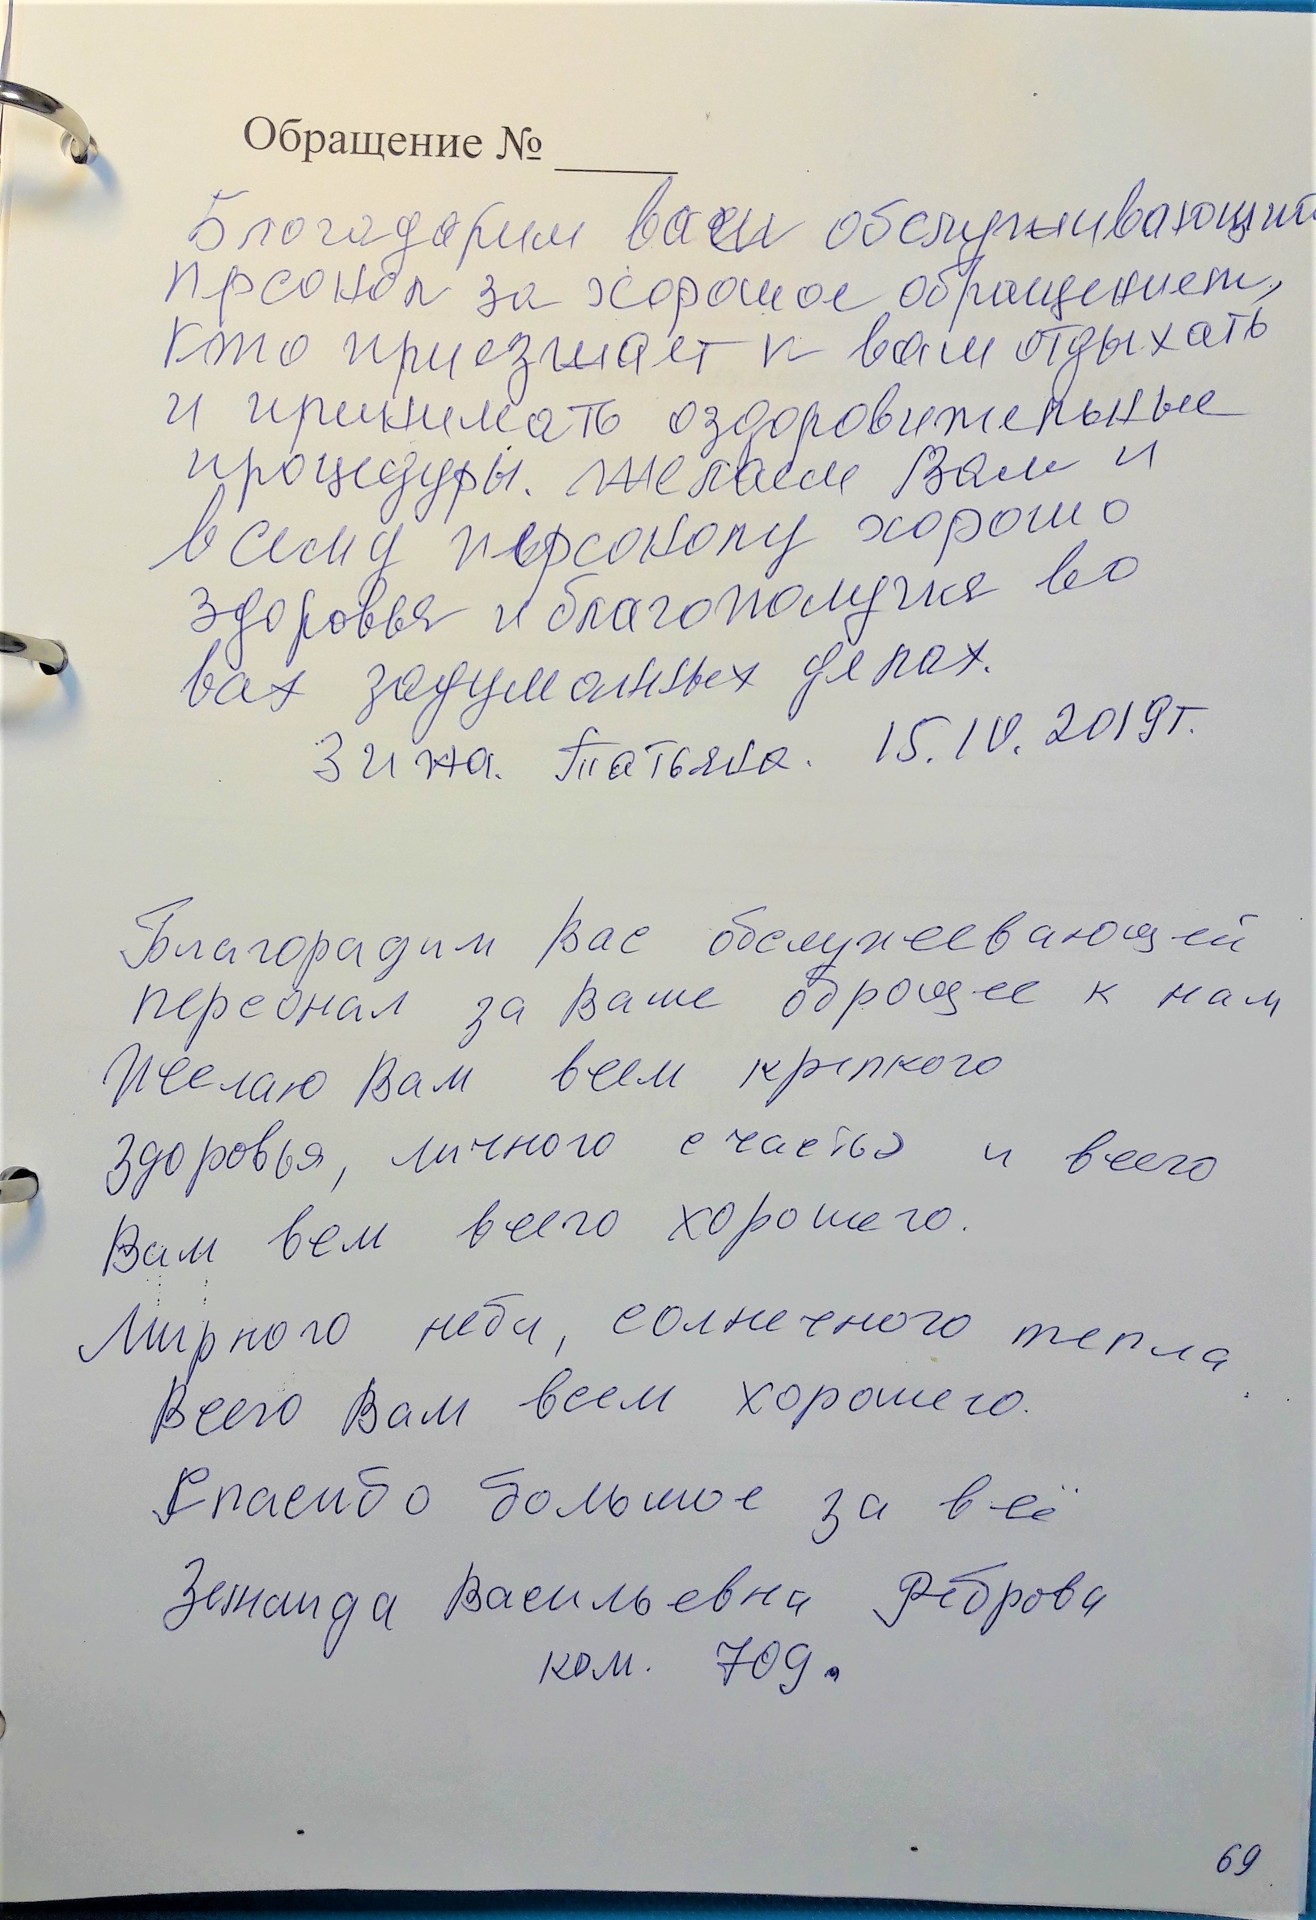 Обращение № _____
Благодарим ваш обслуживающий
прсонал за хорошое обращениет,
кто приезжает к вам отдыхать
и принимать оздоровительные
процедуры. Желаем Вам и
всему персоналу хорошо
здоровья и благополучия во
вах задуманных делах.
Татьяна. 15.10.2019г.
Благорадим Вас обслужеевающей
персонал за Ваше оброщее к нам
Желаю Вам всем крепкого
здоровья, личного счастья и всего
Вам вем всего хорошего.
Мирного неба, солнечного тепла
Всего Вам всем хорошего.
Спасибо большое за всё
Васильевна Реброва
ком. 709.
69